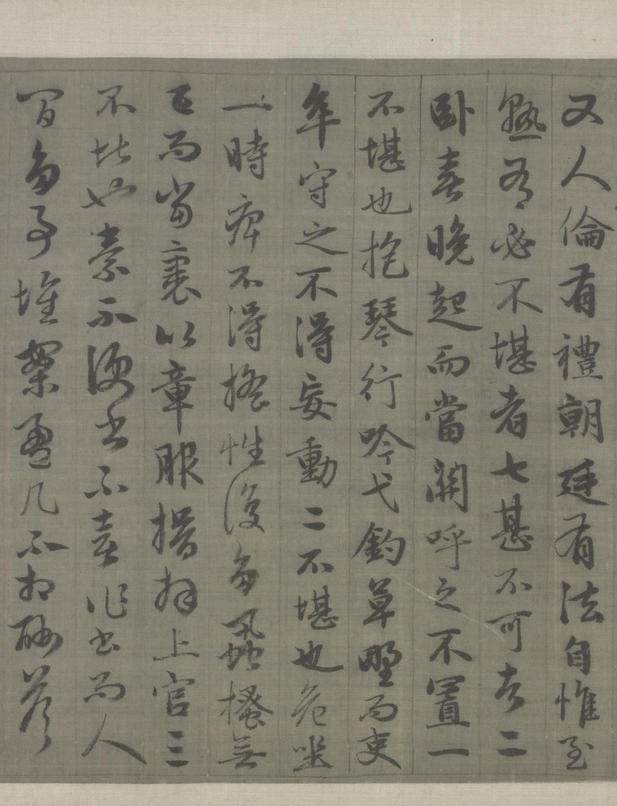 又人倫有禮朝廷有法自惟至
熟有必不堪者七甚不可者二
臥喜晚起而當關呼之不置一
不堪也抱琴行吟弋釣草野而吏
卒守之不得妄動二不堪也危坐
一時痹不得搖性復多蝨搔無
已而當裹以章服揖拜上官三
不堪也素不便書不喜作書而人
間多事堆案盈几不相酬答